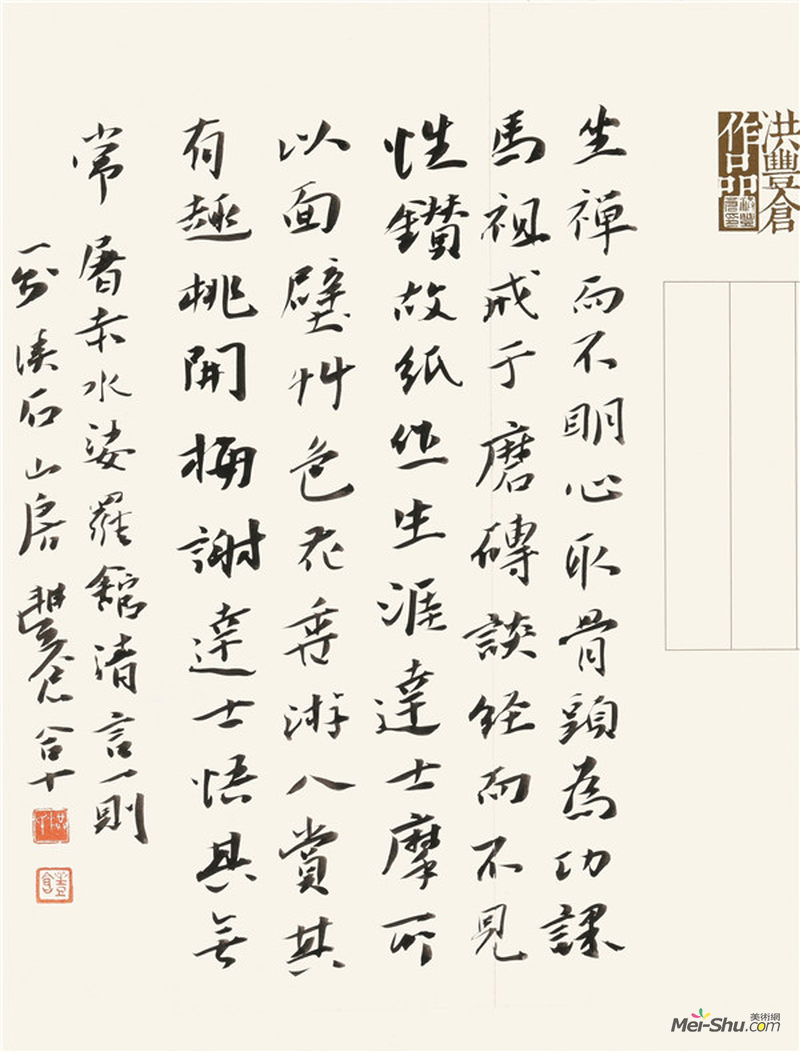 洪豐倉
作品
坐禪而不明心取骨頭為功課
馬祖戒于磨磚談经而不見
性鑽故紙作生涯達士摩所
以面壁艸色花香游人賞其
有趣桃開梅謝達士悟其無
常 屠赤水娑羅館清言一則
石山房 豐倉合十
美術網
Mei-Shu.com